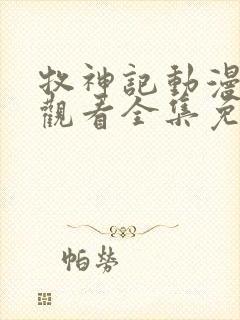 牧神記動漫
觀看全集免
帕勞